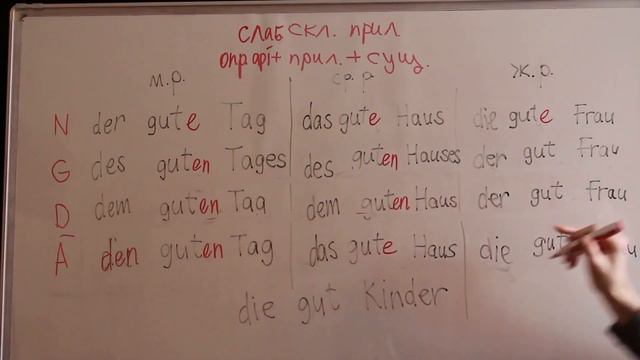 слаб скл. прил.
опр арi + прил. + сущ.
м.р. ср.р. ж.р.
N der gute Tag das gute Haus die gute Frau
G des guten Tages des guten Hauses der gut Frau
D dem guten Tag dem guten Haus der gut Frau
A den guten Tag das gute Haus die gut
die gut Kinder